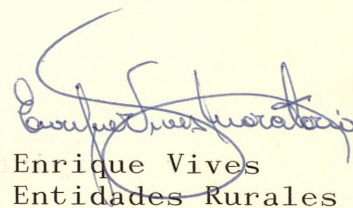 Enrique Vives
Enrique Vives
Entidades Rurales